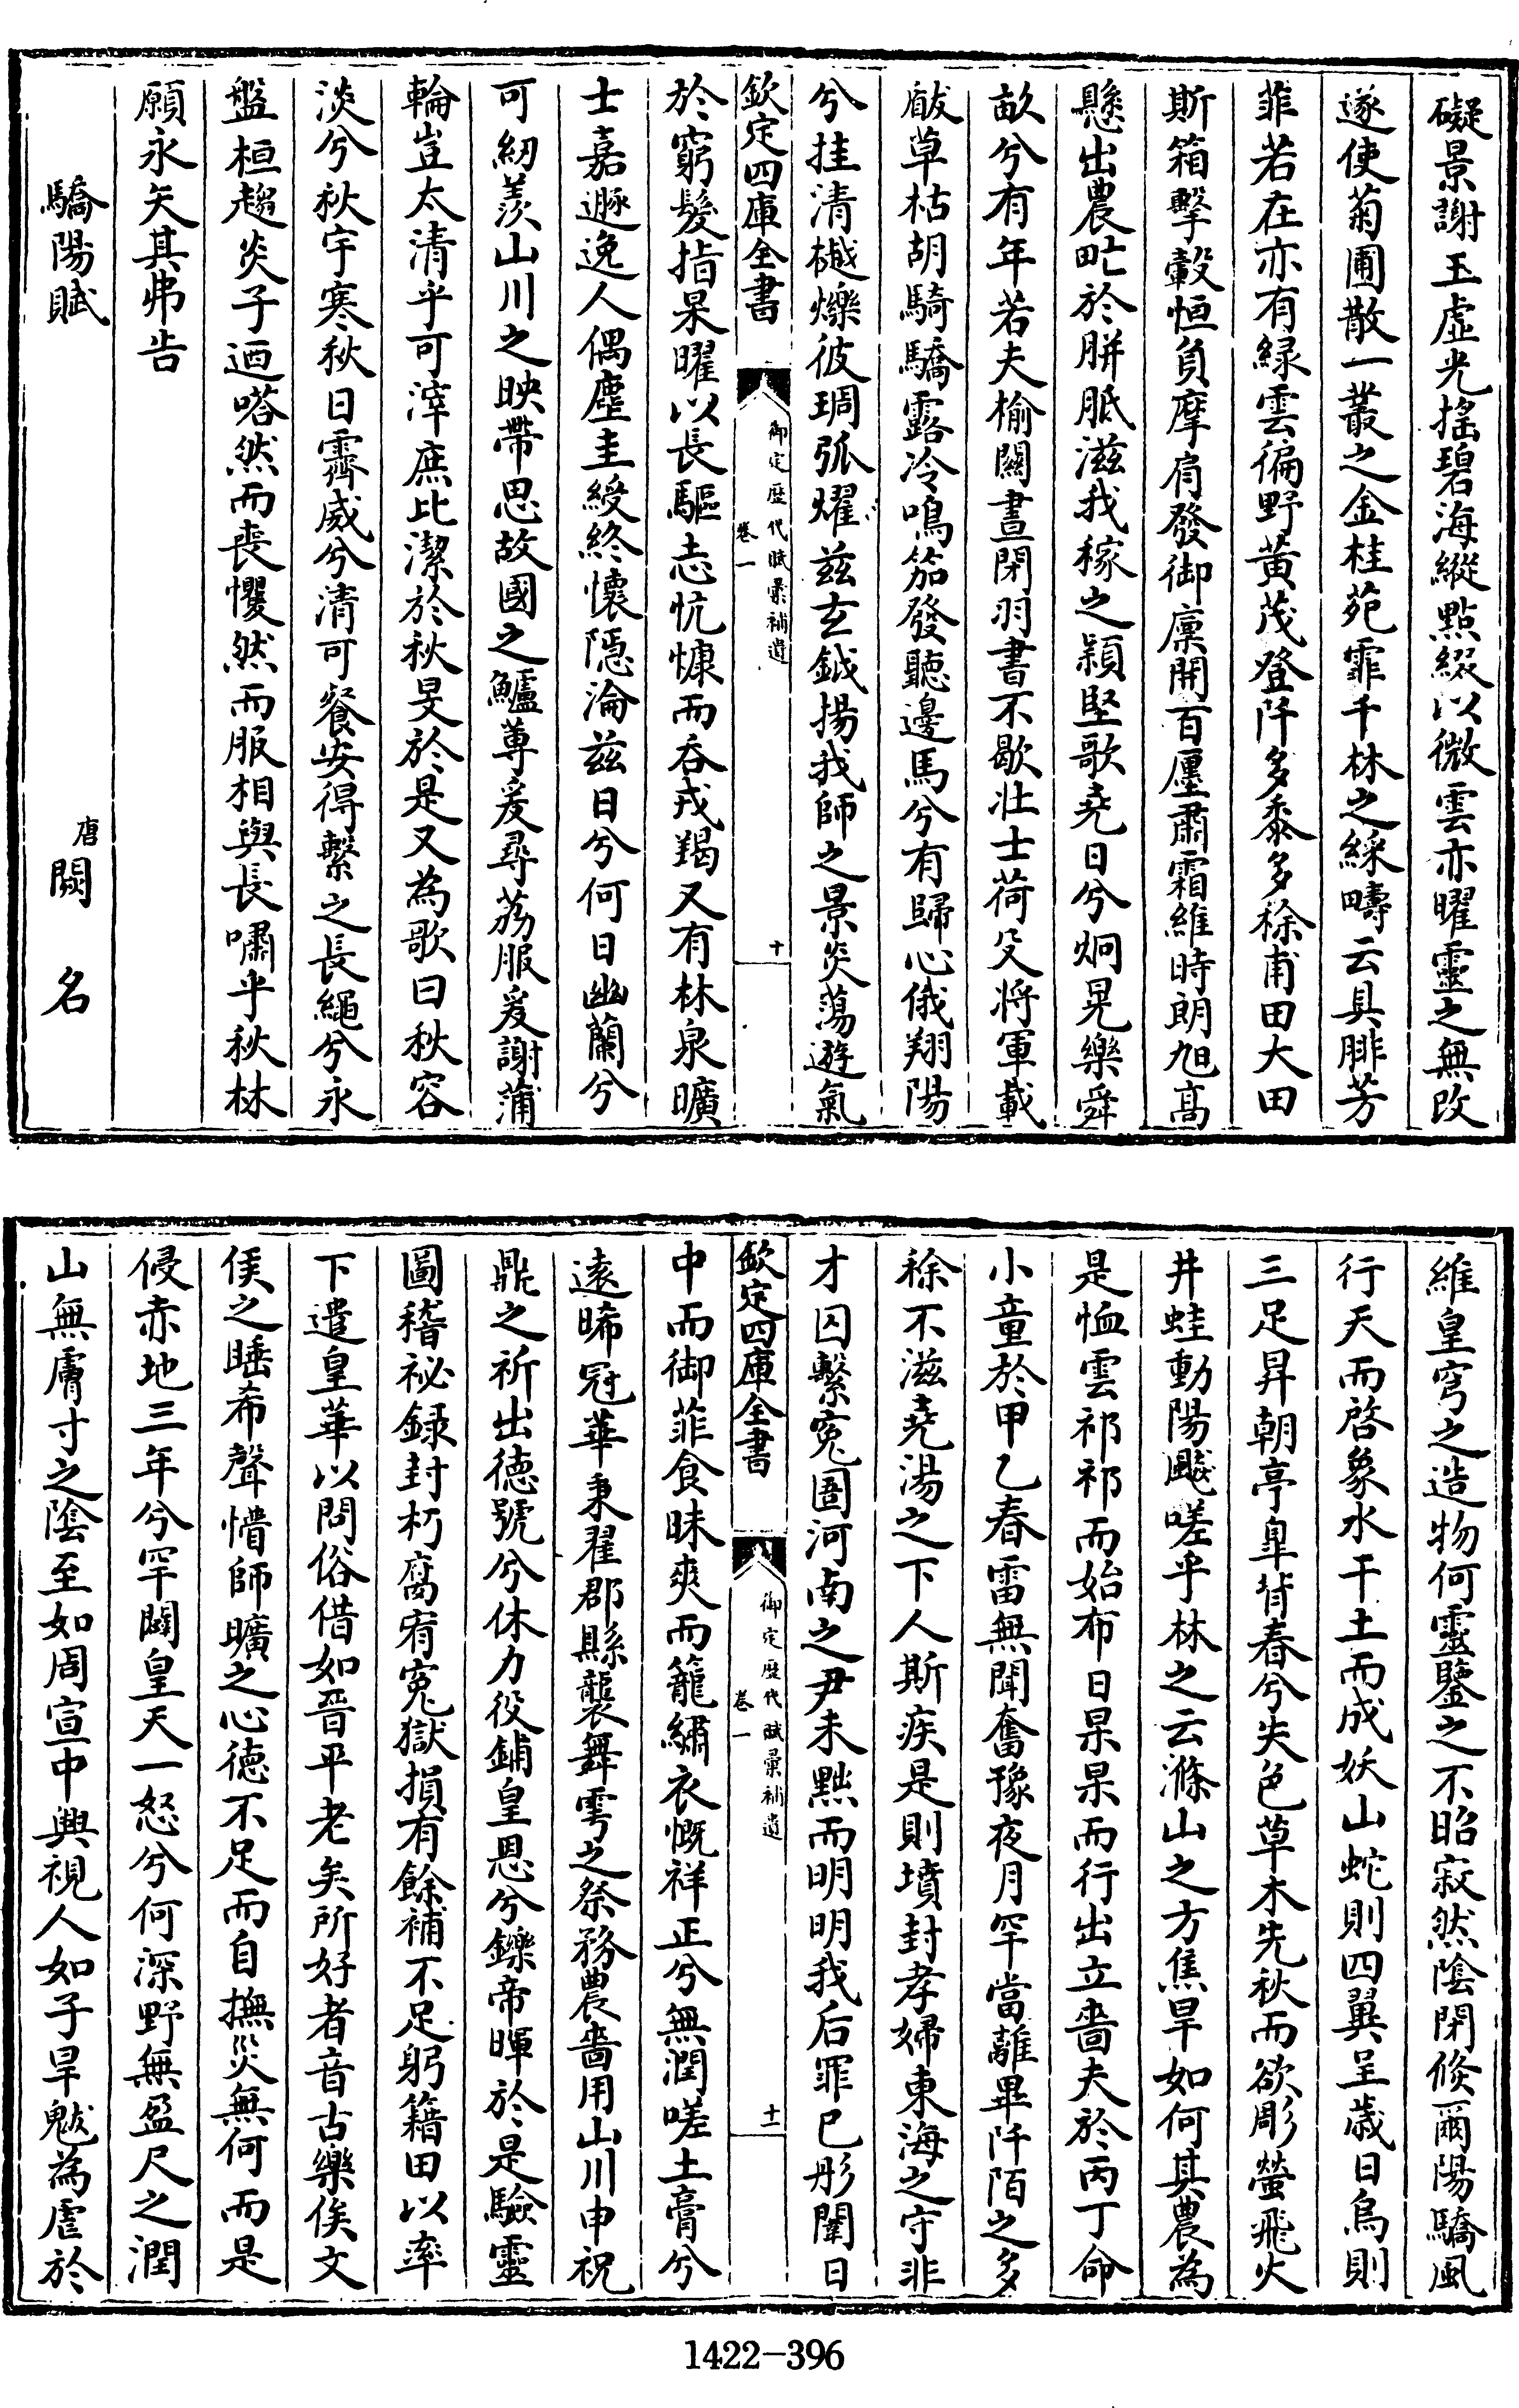 礙景謝玉虛光搖碧海縱點綴以微雲亦曜靈之無改
遂使菊圃散一叢之金桂苑霏千林之綵疇云具腓芳
菲若在亦有緑雲徧野黄茂登阡多黍多稌甫田大田
斯箱擊轂恒負摩肩發御廩開百㕓肅霜維時朗旭高
懸出農甿於胼胝滋我稼之穎堅歌堯日兮炯晃樂舜
畝兮有年若夫榆闗晝閉羽書不歇壮士荷殳將軍載
瞂草枯胡騎驕露冷鳴笳發聽邊馬兮有歸心俄翔陽
兮挂清樾爍彼琱弧燿兹玄鉞揚我師之景炎蕩遊氣
欽定四庫全書
御定歴代賦彙補遺
卷一
十
於窮髮指杲曜以長驅志忼慷而吞戎羯又有林泉曠
士嘉遯逸人偶塵圭綬終懷隠淪兹日兮何日幽蘭兮
可紉羨山川之映帶思故國之鱸蓴爰尋荔服爰謝蒲
輪豈太清乎可滓庶比潔於秋旻於是又為歌曰秋容
淡兮秋宇寒秋日霽威兮清可餐安得繫之長繩兮永
盤桓趨炎子廼嗒然而喪戄然而服相與長嘯乎秋林
願永矢其弗告
驕陽賦
唐闕名
維皇穹之造物何靈鑒之不昭寂然陰閉倐爾陽驕風
行天而啓象水干土而成妖山蛇則四翼呈歲日烏則
三足昇朝亭臯背春兮失色草木先秋而欲彫螢飛火
井蛙動陽飈嗟乎林之云滌山之方焦旱如何其農為
是恤雲祁祁而始布日杲杲而行出立嗇夫於丙丁命
小童於甲乙春雷無聞奮豫夜月罕當離畢阡陌之多
稌不滋堯湯之下人斯疾是則墳封孝婦東海之守非
才囚繫寃圄河南之尹未黜而明明我后罪已彤闈日
欽定四庫全書
御定歴代賦彙補遺
卷一
十一
中而御菲食昧爽而籠繡衣慨祥正兮無潤嗟土膏兮
遠晞冠華秉翟郡縣襲舞雩之祭務農嗇用山川申祝
鼎之祈出徳號兮休力役鋪皇恩兮鑠帝暉於是驗靈
圖稽祕録封朽腐宥寃獄損有餘補不足躬籍田以率
下遣皇華以問俗借如晉平老矣所好者音古樂俟文
侯之睡希聲懵師曠之心徳不足而自撫災無何而是
侵赤地三年兮罕闢皇天一怒兮何深野無盈尺之潤
山無膚寸之陰至如周宣中興視人如子旱魃為虐於
1422-396